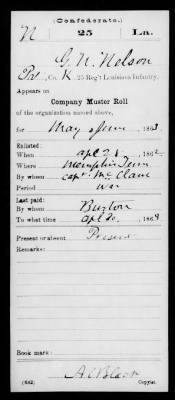 (Confederate.)
N 25 La.
G. N. Nelson
Pvt, Co. K, 25 Reg't Louisiana Infantry.
Appears on
Company Muster Roll
of the organization named above,
for May & June, 1863.
Enlisted:
When Apl 21, 1862
Where Memphis Tenn
By whom Capt. McClane
Period War
Last paid:
By whom Burton
To what time Apl 30, 1863
Present or absent Present
Remarks:
Book mark:
(642) A C Black Copyist.